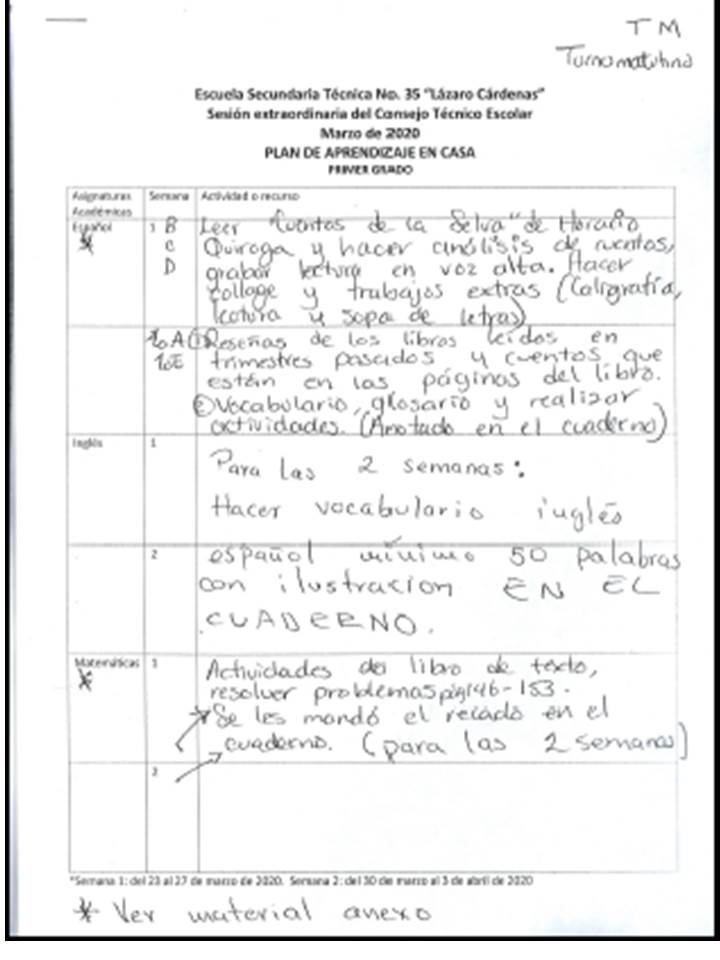 TM
Turno matutino
Escuela Secundaria Técnica No. 35 "Lázaro Cárdenas"
Sesión extraordinaria del Consejo Técnico Escolar
Marzo de 2020
PLAN DE APRENDIZAJE EN CASA
PRIMER GRADO
Asignaturas Académicas Semana Actividad o recurso
Español 1 B Leer "Cuentos de la Selva" de Horacio
* C Quiroga y hacer análisis de cuentos,
D grabar lectura en voz alta. Hacer
collage y trabajos extras (Caligrafía,
lectura y sopa de letras)
1oA ① Reseñas de los libros leídos en
1oE trimestres pasados y cuentos que
están en las páginas del libro.
② Vocabulario, glosario y realizar
actividades. (Anotado en el cuaderno)
Inglés 1
Para las 2 semanas:
Hacer vocabulario inglés
2 español mínimo 50 palabras
con ilustracion EN EL
CUADERNO.
Matemáticas 1 Actividades del libro de texto,
* resolver problemas pág 146-153.
* Se les mandó el recado en el
cuaderno. (para las 2 semanas)
2
*Semana 1: del 23 al 27 de marzo de 2020. Semana 2: del 30 de marzo al 3 de abril de 2020
* Ver material anexo